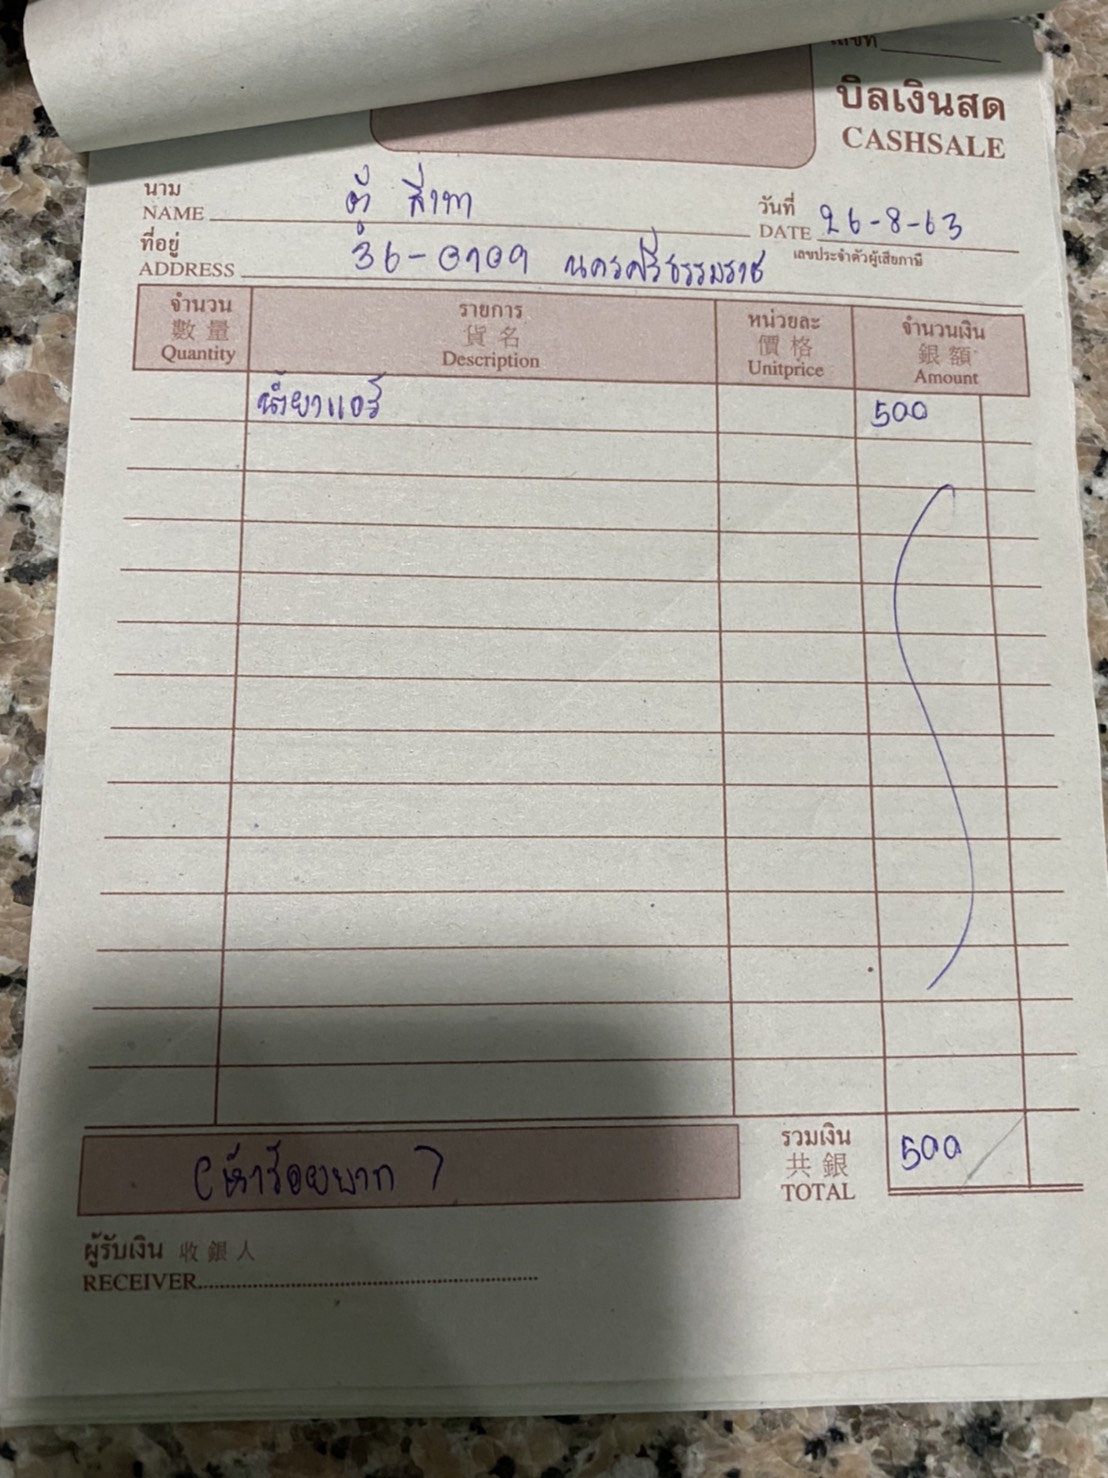 เลขที่
บิลเงินสด
CASHSALE
นาม
NAME ตั้ สีเทา
วันที่
DATE 26-8-63
ที่อยู่
ADDRESS 36-0109 นครศรีธรรมราช
เลขประจำตัวผู้เสียภาษี
จำนวน 數量 Quantity
รายการ 貨名 Description
หน่วยละ 價格 Unitprice
จำนวนเงิน 銀額 Amount
น้ำยาแอร์ 500
(ห้าร้อยบาท)
รวมเงิน 共銀 TOTAL 500
ผู้รับเงิน 收銀人
RECEIVER